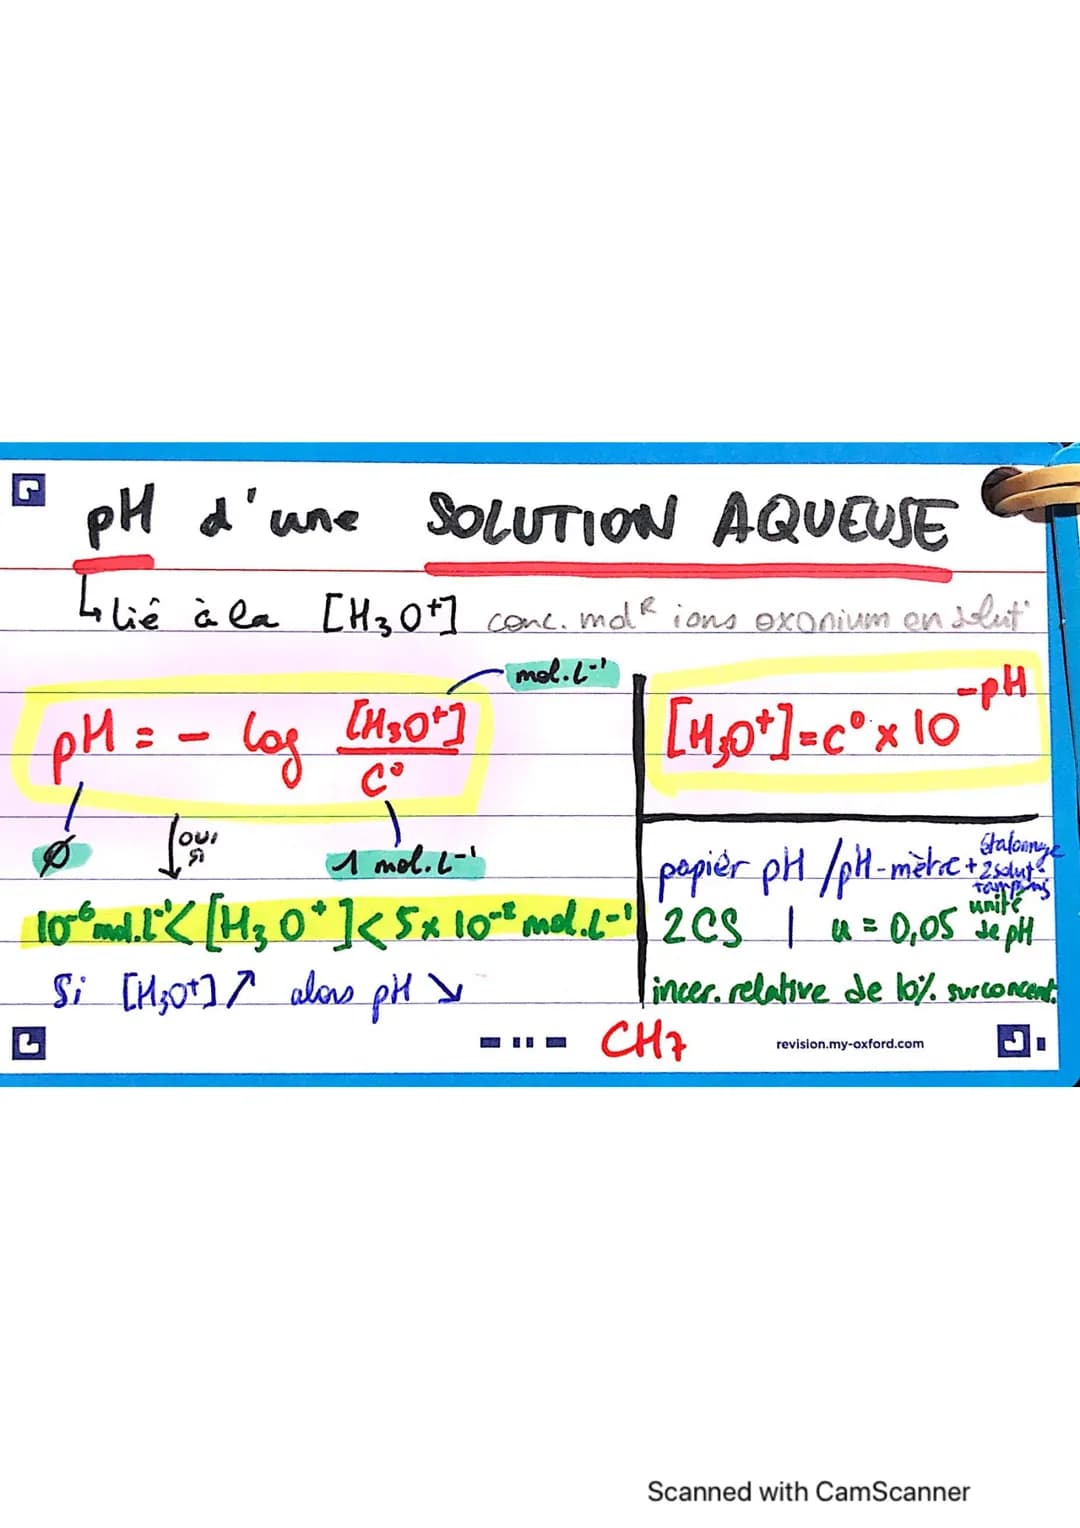 pH d'une SOLUTION AQUEUSE
↳ lié à la [H₃O⁺] conc. molᴿ ions oxonium en solut°
mol.L⁻¹
pH = - log [H₃O⁺]/C°
Ø
oui si
1 mol.L⁻¹
10⁻⁶ mol.L⁻¹ < [H₃O⁺] < 5 x 10⁻² mol.L⁻¹
Si [H₃O⁺] ↗ alors pH ↘
[H₃O⁺] = c° x 10⁻ᵖᴴ
papier pH / pH-mètre + étalonnage 2 solut° tampons
2CS | u = 0,05 unité de pH
incer. relative de 10% sur concent.
CH7
revision.my-oxford.com
Scanned with CamScanner